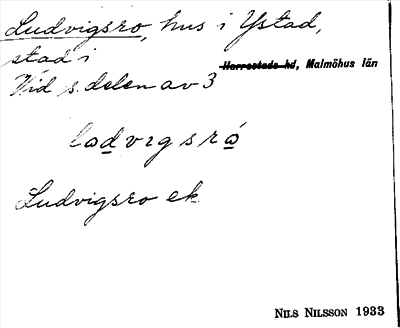 Ludvigsro, hus i Ystad,
stad i
Vid s. delen av 3 Herrestads hd, Malmöhus län
lodvigsrọ
Ludvigsro ek
NILS NILSSON 1933